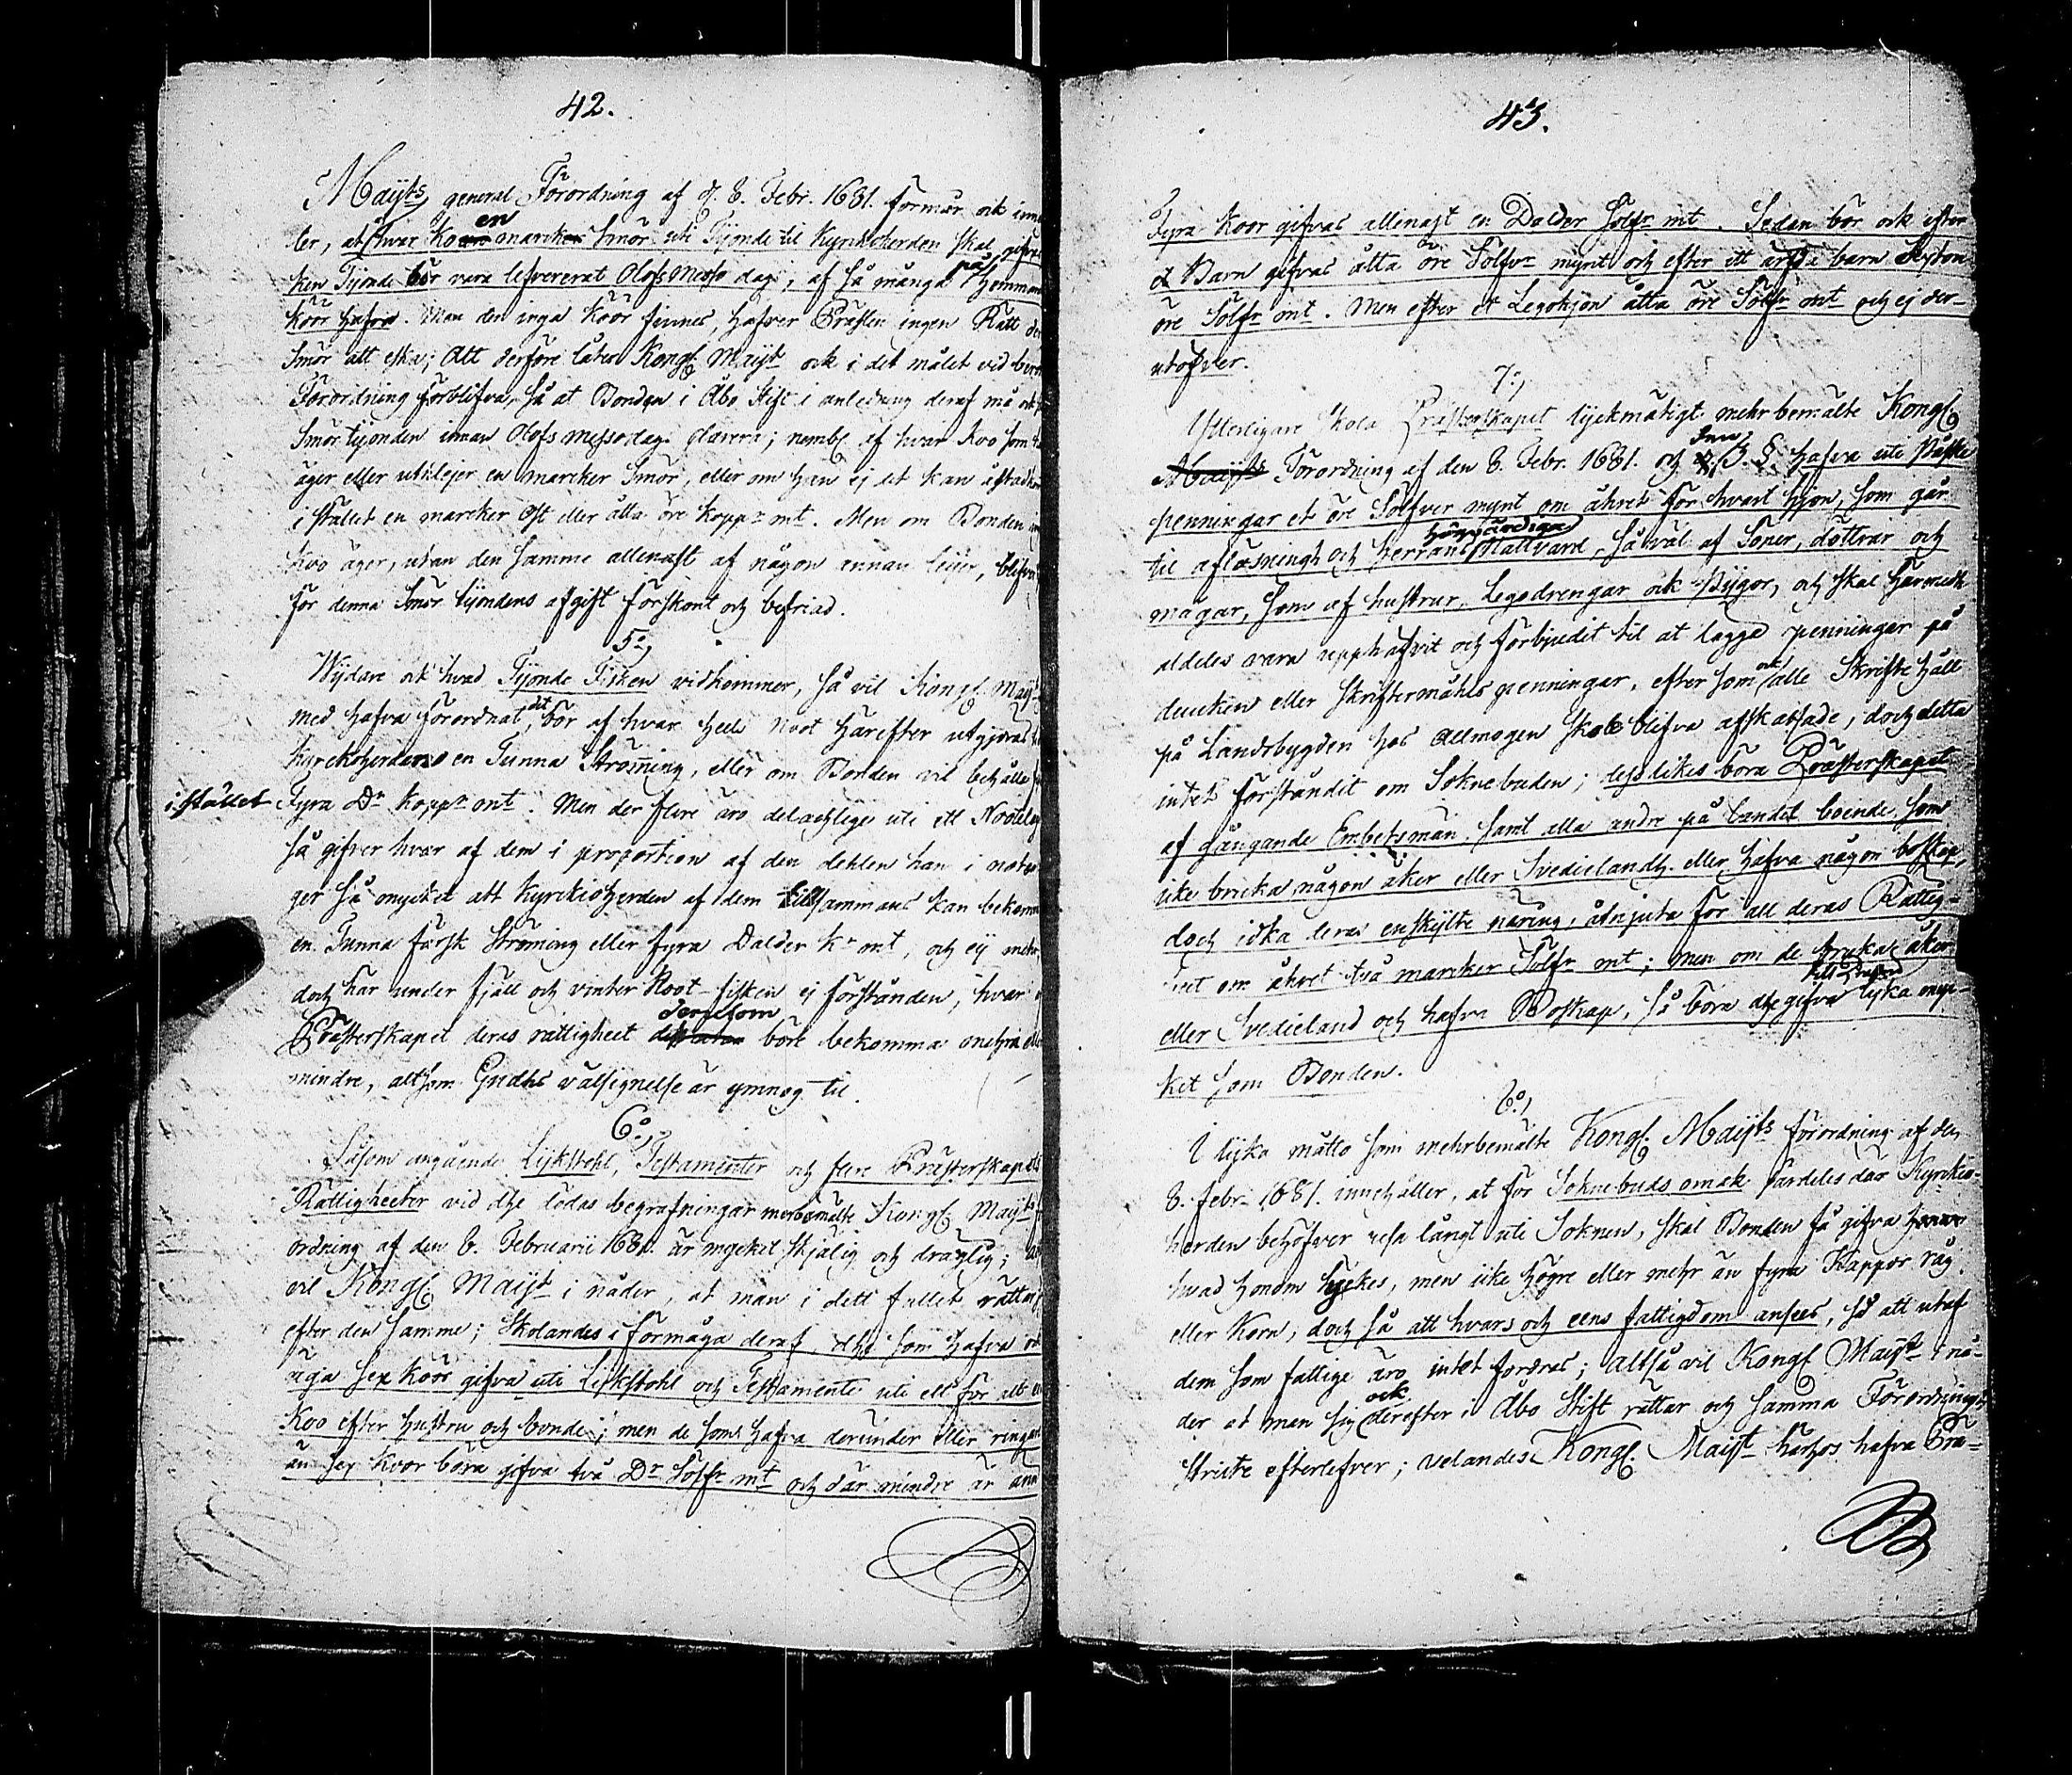 42.
Maijts general Förordning af d. 8. Febr. 1681. förmår ock inne
ler, at hvar Ko en marcker Smör uti Tijonde til Kyrkioherden skal gifvas
ken Tijonde bör vara lefvererat Olofs Messo dag, af så många på Hemman
köör hafva. Men der inga köör finnes, hafver Prästen ingen Rätt der
Smör att eska; Alt derföre låter Kongl. Maijt ock i det målet vid berör
Förordning förblifva, så at Bonden i Åbo Stift i anledning deraf må och
Smör tijonden innan Olofs messodag; nembl. af hvar Koo som
äger eller utleijer en marcker Smör, eller om han ej det kan
i stället en marcker Ost eller åtta öre koppr mt. Men om Bonden
Koo äger, utan den samme allenast af någon annan leijer, blifva
för denna Smör tijondens afgift förskont och befriad.
5:o
Wijdare ock hvad Tijonde Fisken vidkommer, så vil Kongl. Maijt
med hafva förordnat, at bör af hvar heel Noot härefter utgjöras
kyrckoherdens en Tunna Strömming, eller om Bonden vil behålla
i stället Fyra Dr koppr mt. Men der flere äro delachtige uti ett Notelag
så gifver hvar af dem i proportion af den dehlen han i noten
ger så mycket att kyrckioherden af dem tillsammans kan bekomma
en Tunna färsk Strömming eller fyra Daler kr mt, och eij mehr,
doch här under fjäll och vinter Noot-fisken ej förstånden, hvar
Prästerskapet deras rättigheet dersom böre bekomma mehra ell
mindre, altsom Gudhs välsignelse är ymnog til.
6:o
Såsom angående Lijkstohl, Testamenter och flere Prästerskapets
Rättigheeter vid the dödas begrafningar merbemälte Kongl. Maijts
ordning af den 8. Februarii 1681. är mycket skjälig och dräglig;
vil Kongl. Maijt i nåder, at man i dett fallet rättar
efter den samme; Skolandes i förmåga deraf, the som hafva och
äga sex köör gifva uti Likstohl och Testamente uti ett för alt en
Koo efter hustru och bonde; men de som hafva derunder eller ringare
än sex Koor böra gifva två Dr Solfr mt och där mindre är än
43.
Fyra Koor gifvas allenast en Dalder Solfr mt. Sedan bör ock efter
et Barn gifvas åtta öre Solfvr mynt och efter ett ärfda barn Sexton
öre Solfr mt. Men efter et Legohjon åtta öre Solfr mt och ej der-
utöfver.
7:o
Ytterligare skola Prästerskapet lijckmätigt mehrbemälte Kongl.
Maijts Förordning af den 8. Febr. 1681. och dess 3. §. hafva uti Påska
penningar et öre Solfver mynt om åhret för hvart hjon, som går
til aflösningh och Herrans högvärdiga Nattvard, så väl af Söner, döttrar och
mågar, som af hustrur, Legodrengar ock Pijgor, och skal härmedh
aldeles vara upphäfvit och förbiudit til at lägga penningar på
duucken eller skriftermåhls penningar, efter som ock alle Skrifte håll
på Landsbygden hos Allmogen skole blifva afskaffade, doch detta
intet förståndit om Soknebuden; lijkes böra Prästerskapet
af gångande Embetsmän, samt alla andre på Landet boende, som
icke bruka någon åker eller Svedielandh. eller hafva någon boskap,
doch idka deras enskylte näring, åtnjuta för all deras Rättig-
heet om åhret två marcker Solfr mt; men om de bruka åker
eller Svedieland och hafva Boskap, så böra the gifva lijka myc-
ket som Bonden.
8:o
I lijka måtto som mehrbemälte Kongl. Maijts förordning af den
8. febr. 1681. innehåller, at för Soknebuds omak särdeles där Kyrkio-
herden behöfver resa långt uti Soknen, skal Bonden få gifva
hvad honom tyckes, men icke högre eller mehr än fyra Kappor råg
eller Korn, doch så att hvars och eens fattigdom ansees, så att utaf
dem som fattige äro intet fordras; altså vil Kongl Maijt i nå-
der at man sig ock derefter i Åbo Stift rättar och samma Förordning
stricte efterlefver; velandes Kongl. Maijt härhos hafva Prä-